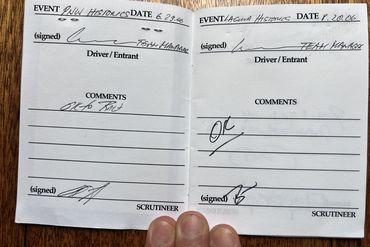 EVENT PNW HISTORICS DATE 6.29.06
(signed) TEAM MANAGER
Driver / Entrant
COMMENTS
OK to RACE
(signed)
SCRUTINEER
EVENT LAGUNA HISTORIC DATE 8.20.06
(signed) TEAM MANAGER
Driver / Entrant
COMMENTS
OK
(signed)
SCRUTINEER